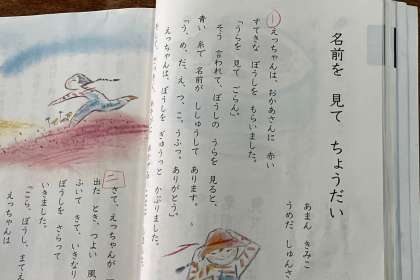 名前を 見て ちょうだい
あまん きみこ
うめだ しゅんさ
一 えっちゃんは、おかあさんに 赤い
すてきな ぼうしを もらいました。
「うらを 見て ごらん。」
そう 言われて、ぼうしの うらを 見ると、
青い 糸で 名前が ししゅうして あります。
「う、め、だ、え、つ、こ。うふっ。ありがとう。」
えっちゃんは、ぼうしを ぎゅうっと かぶりました。
二 さて、えっちゃんが
出た とき、つよい 風
ふいて きて、いきなり
ぼうしを さらって
いきました。
「こら、ぼうし、まてえ
えっちゃんは